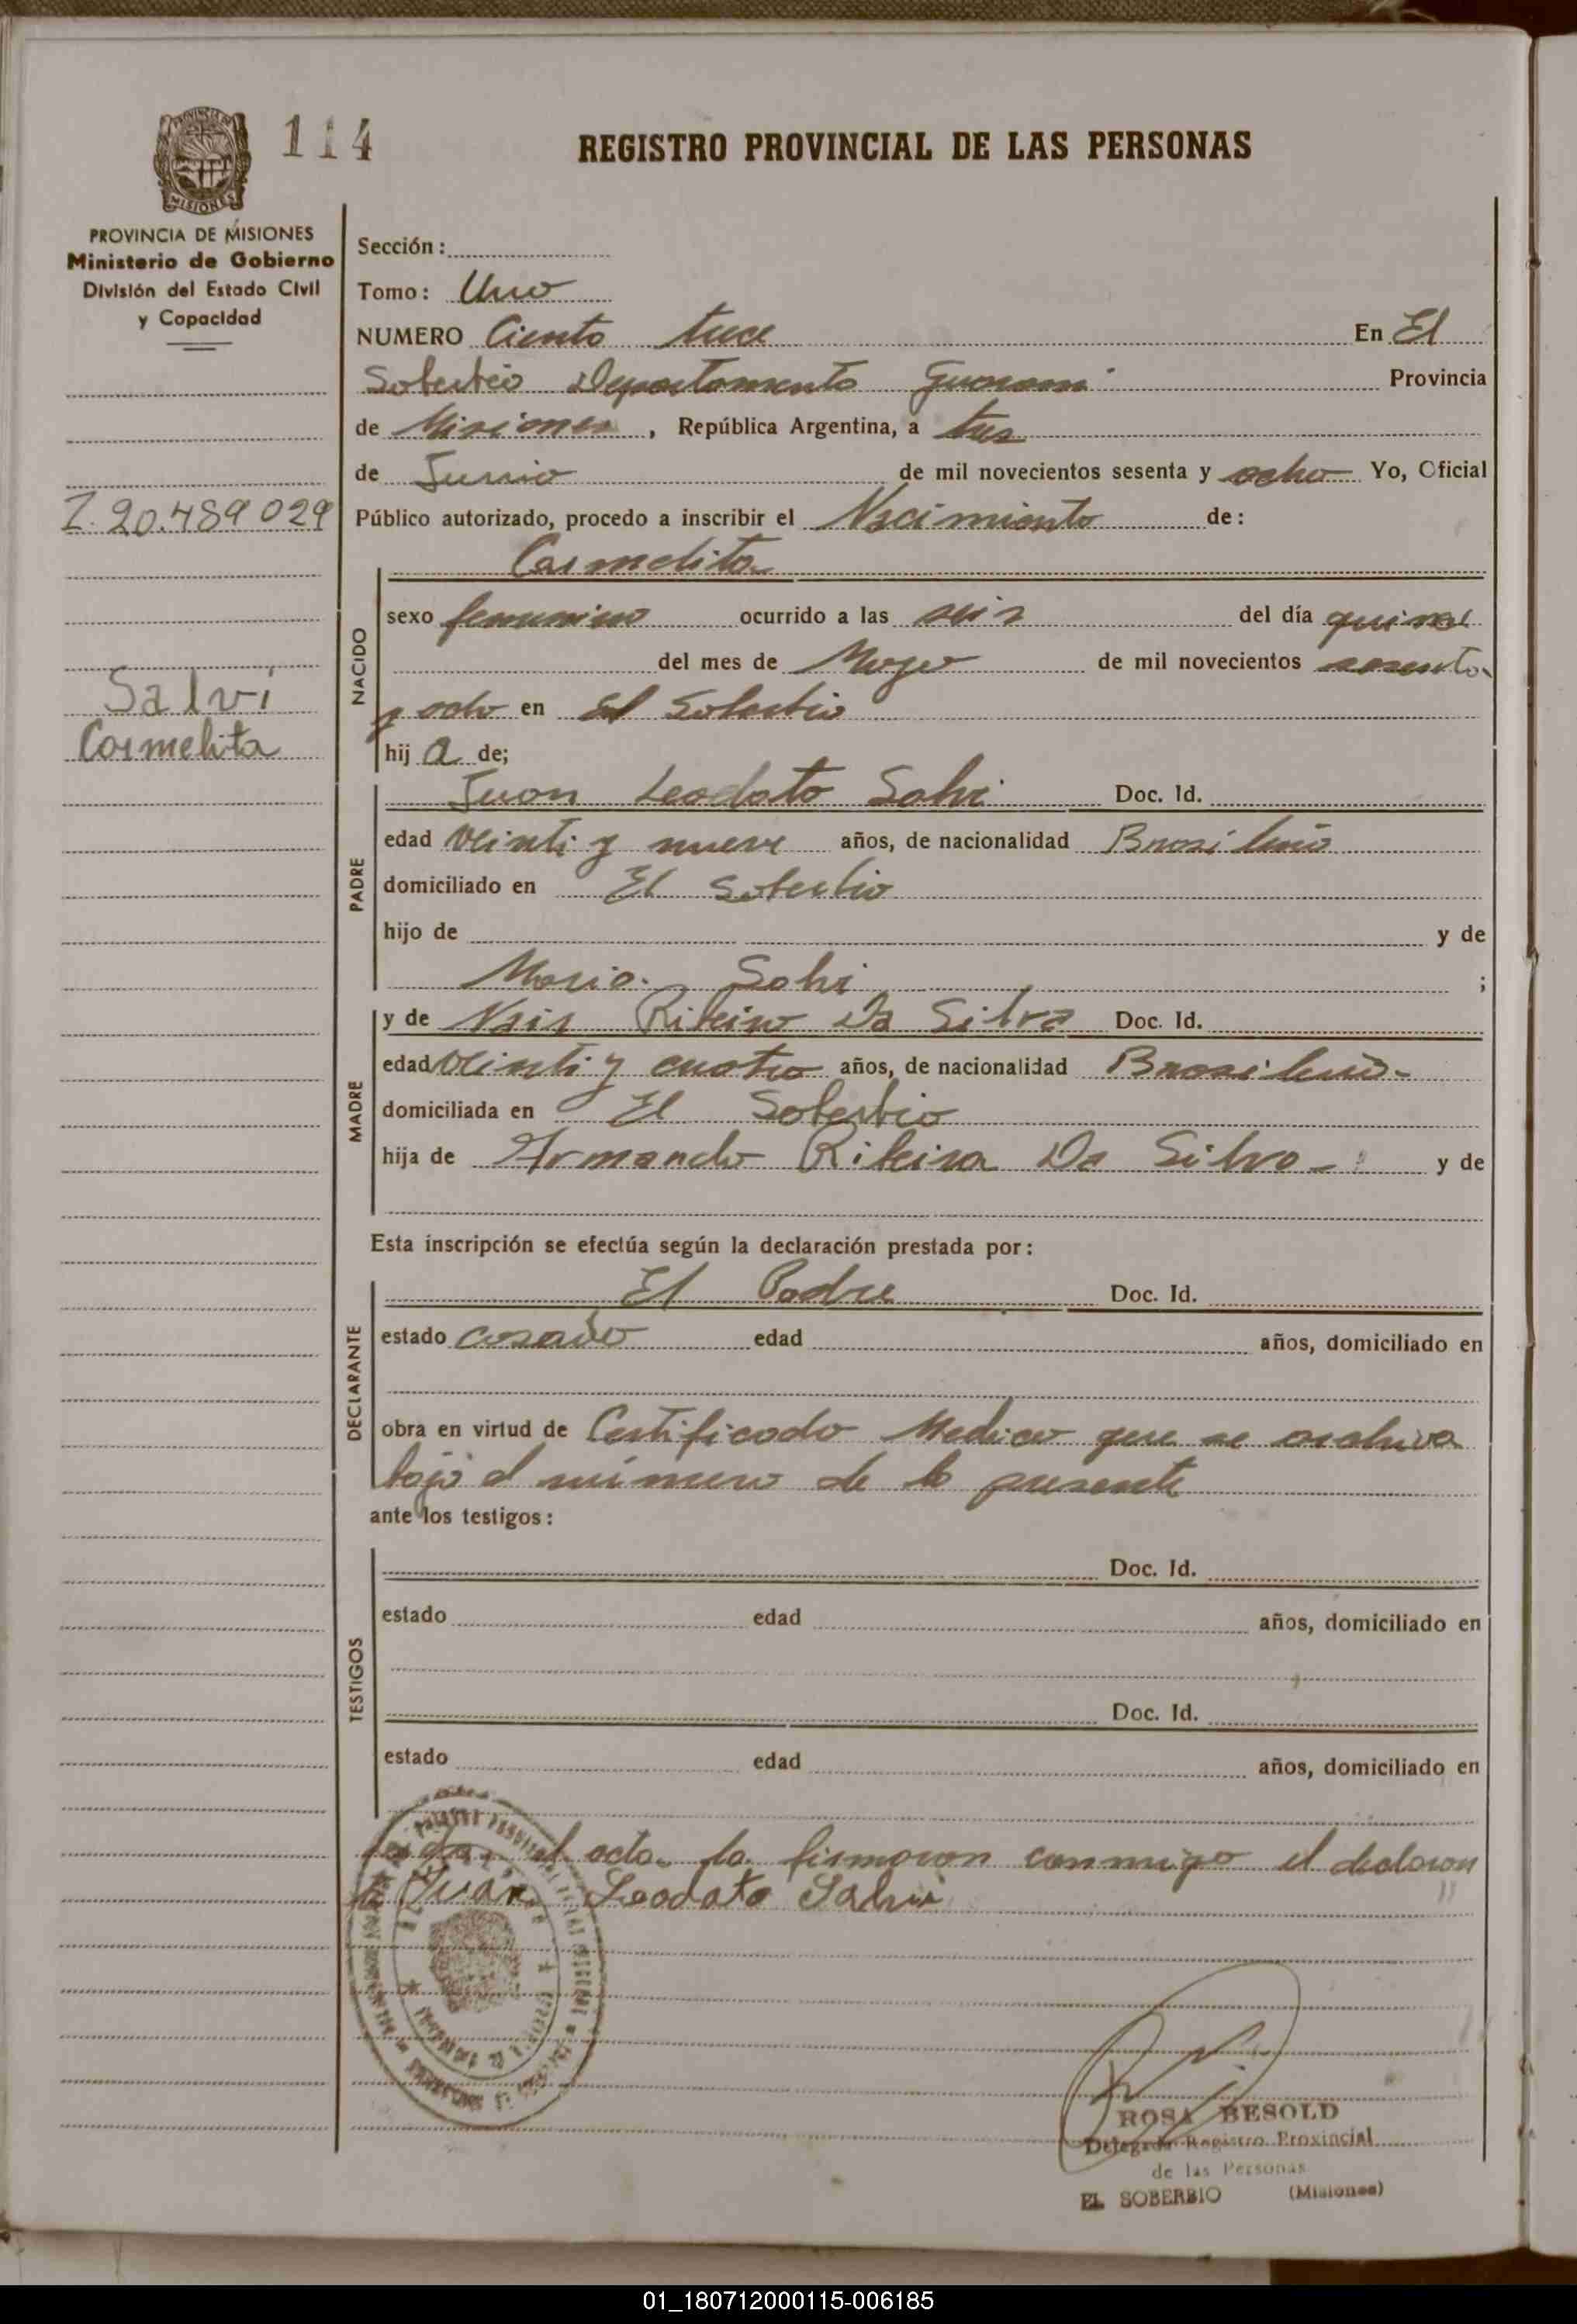 114
REGISTRO PROVINCIAL DE LAS PERSONAS
MISIONES
PROVINCIA DE MISIONES
Ministerio de Gobierno
División del Estado Civil
y Capacidad
I. 20.489 029
Salvi
Carmelita
Sección:
Tomo: Uno
NUMERO Ciento trece En El
Soberbio Departamento Guarani Provincia
de Misiones, República Argentina, a tres
de Junio de mil novecientos sesenta y ocho Yo, Oficial
Público autorizado, procedo a inscribir el Nacimiento de:
Carmelita
NACIDO
sexo femenino ocurrido a las seis del día quince
del mes de Mayo de mil novecientos sesenta
y ocho en El Soberbio
hij a de;
PADRE
Juan Leodato Salvi Doc. Id.
edad veinti y nueve años, de nacionalidad Brasileño
domiciliado en El Soberbio
hijo de y de
Maria Salvi ;
MADRE
y de Nair Ribeiro Da Silva Doc. Id.
edad veinti y cuatro años, de nacionalidad Brasileña
domiciliada en El Soberbio
hija de Armando Ribeira Da Silva y de
Esta inscripción se efectúa según la declaración prestada por:
DECLARANTE
El Padre Doc. Id.
estado casado edad años, domiciliado en
obra en virtud de Certificado Medico que se archiva
bajo el número de la presente
ante los testigos:
TESTIGOS
Doc. Id.
estado edad años, domiciliado en
Doc. Id.
estado edad años, domiciliado en
el acta la firmaron conmigo el declaran
Juan Leodato Salvi
ROSA BESOLD
Delegada Registro Provincial
de las Personas
EL SOBERBIO (Misiones)
01_180712000115-006185